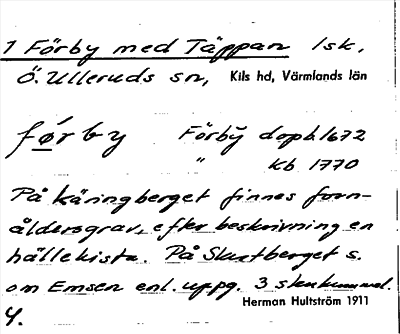 1 Förby med Täppan 1sk,
Ö. Ulleruds sn, Kils hd, Värmlands län
førby Förby dopb. 1672
" kb 1770
På Käringberget finnes forn-
åldersgrav, efter beskrivning en
hällekista. På Slustberget s.
om Emsen enl. uppg. 3 stenkumml.
Herman Hultström 1911
4.